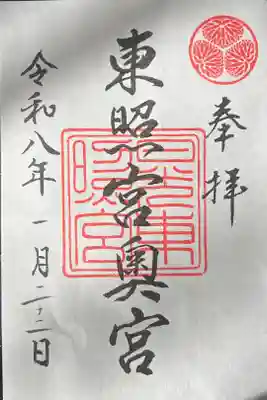 奉拝
東照宮奥宮
日光東照宮
令和八年一月二十二日